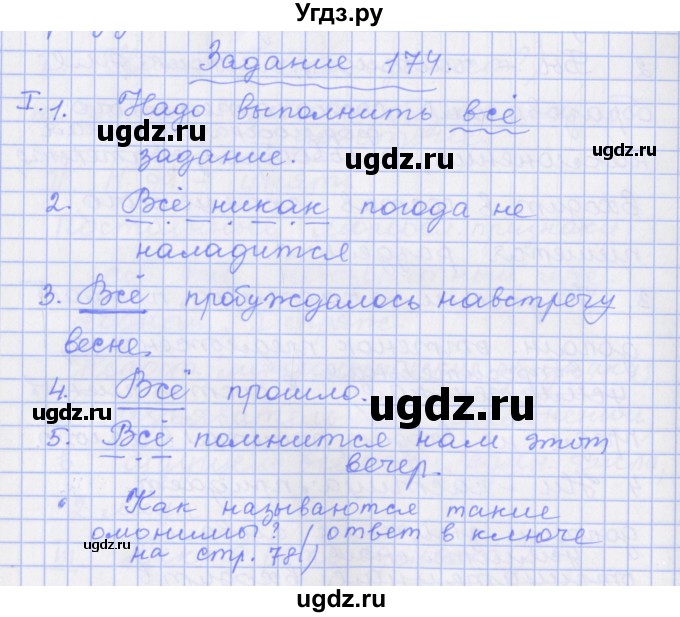 Угдз.ру
Задание 174.
I. 1. Надо выполнить всё
задание.
2. Всё никак погода не
наладится
3. Всё пробуждалось навстречу
весне.
4. Всё прошло.
5. Всё помнится нам этот
вечер.
Как называются такие
омонимы? (ответ в ключе
на стр. 78)
ugdz.ru
ugdz.ru
ugdz.ru
ugdz.ru
ugdz.ru
ugdz.ru
ugdz.ru
ugdz.ru
ugdz.ru
ugdz.ru
ugdz.ru